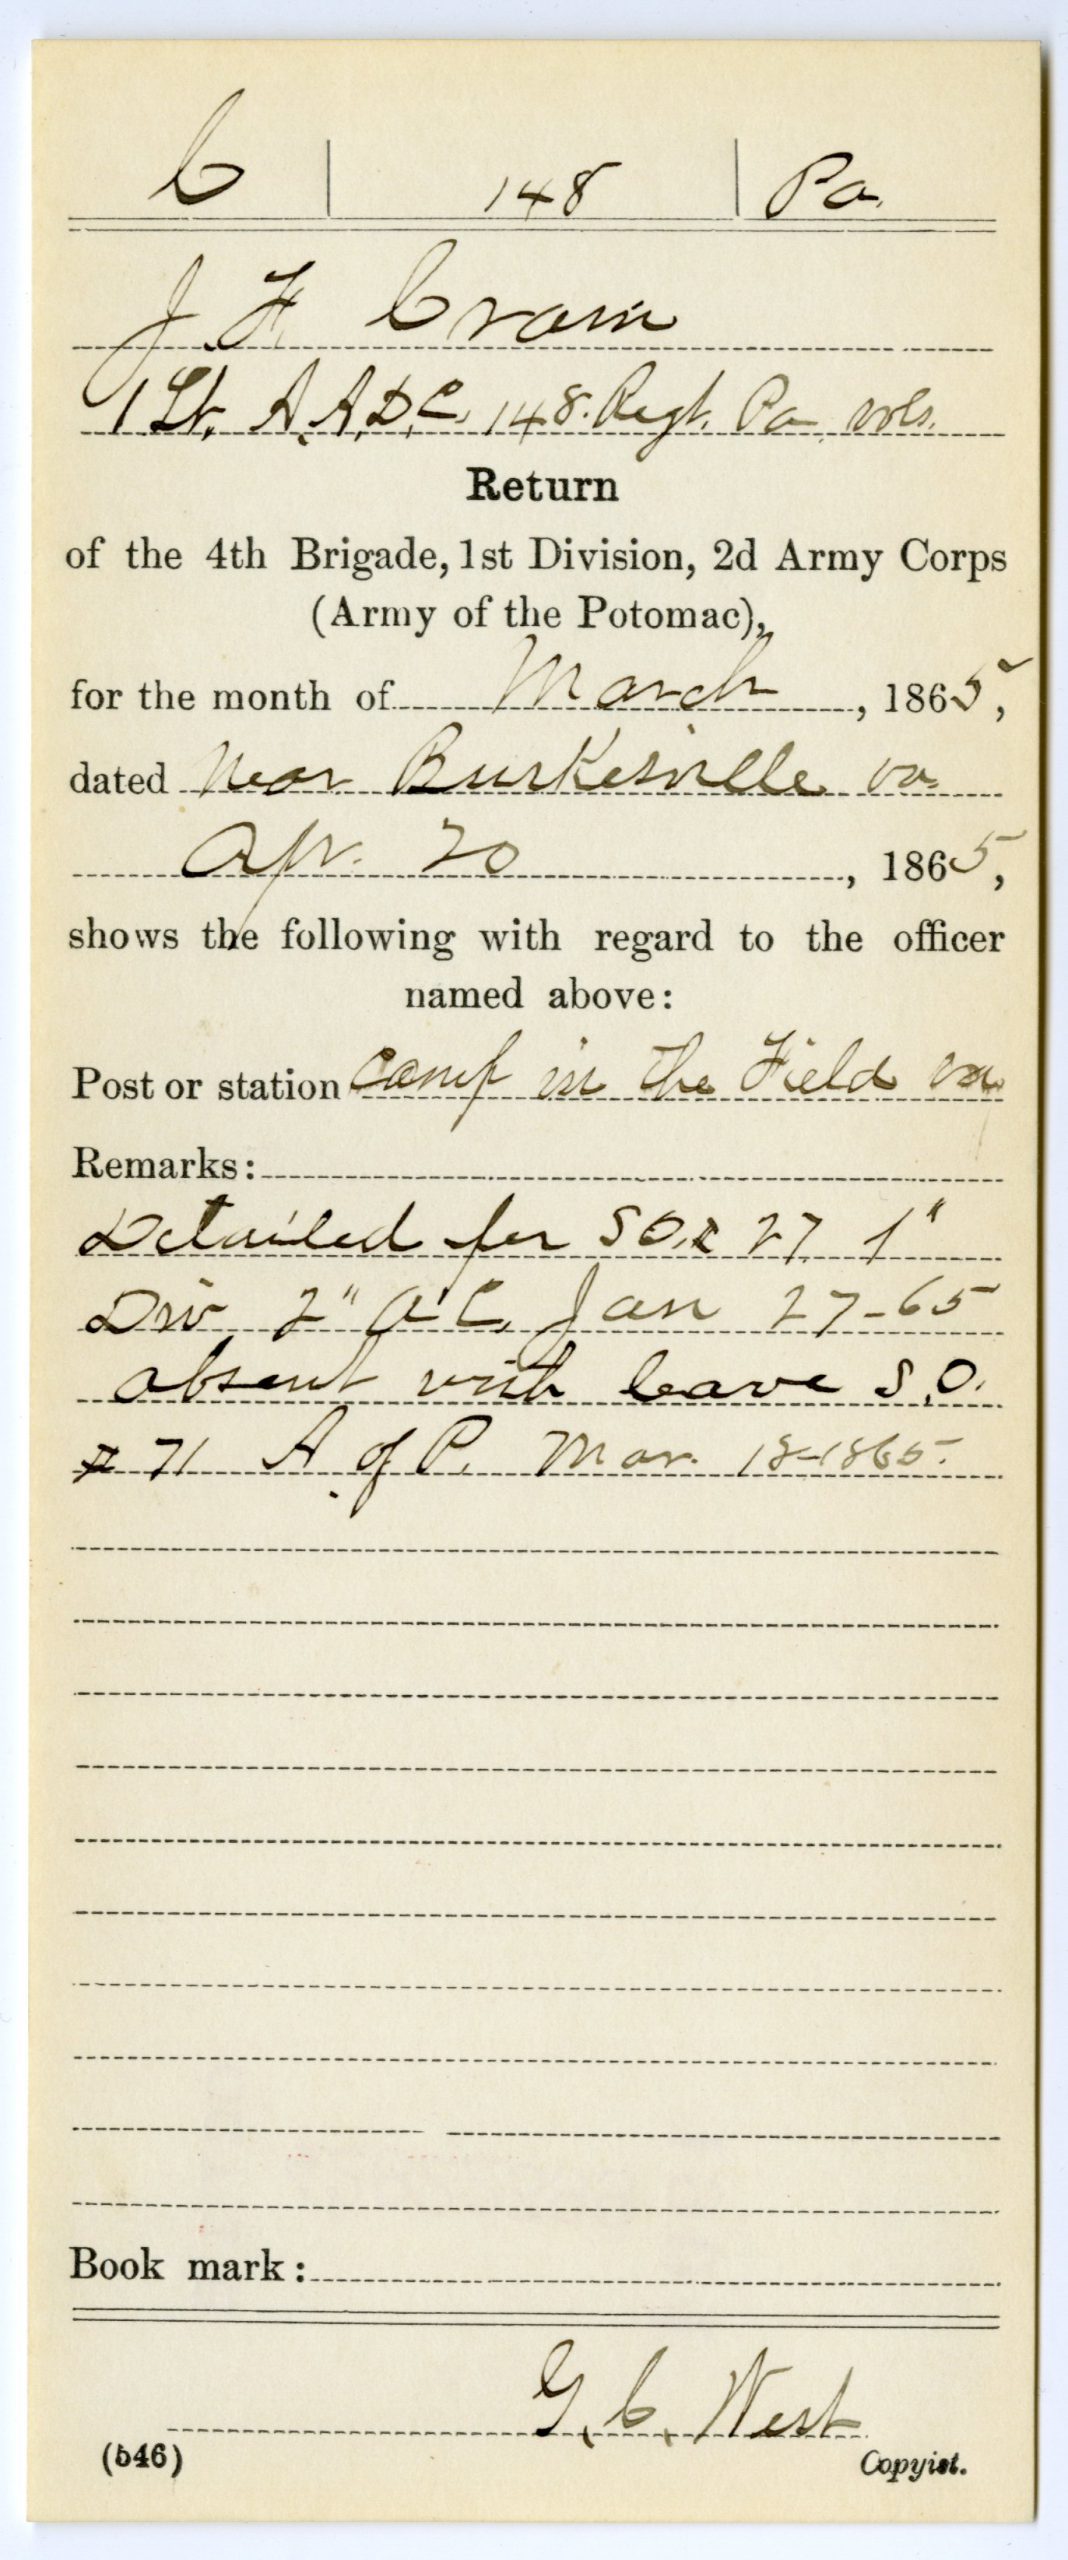 C | 148 | Pa.
J. F. Crain
1 Lt. A.A.D.C. 148. Regt. Pa. vols.
Return
of the 4th Brigade, 1st Division, 2d Army Corps
(Army of the Potomac),
for the month of March, 1865,
dated Near Burkesville va.
Apr. 20, 1865,
shows the following with regard to the officer
named above:
Post or station Camp in the Field va
Remarks:
Detailed per S.O. # 27 1"
Div 2" A.C. Jan 27-65
absent with leave S.O.
# 71 A of P. Mar. 18-1865.
Book mark:
G. C. West
(546) Copyist.